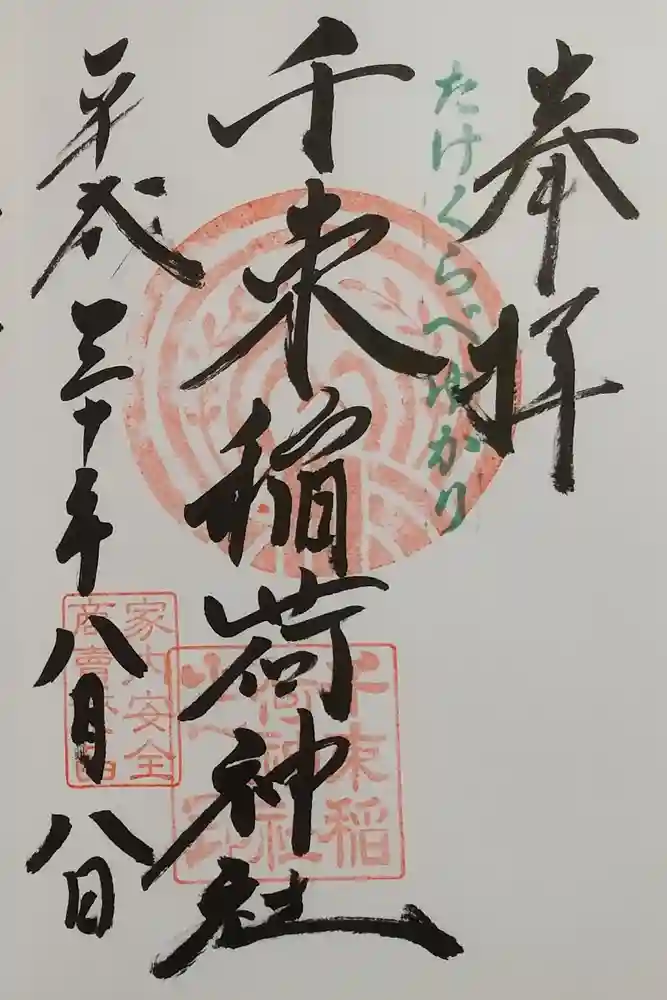 奉拝
たけくらべゆかり
千束稲荷神社
平成三十年八月八日
家内安全
商賣繁昌
千束稲
荷神社